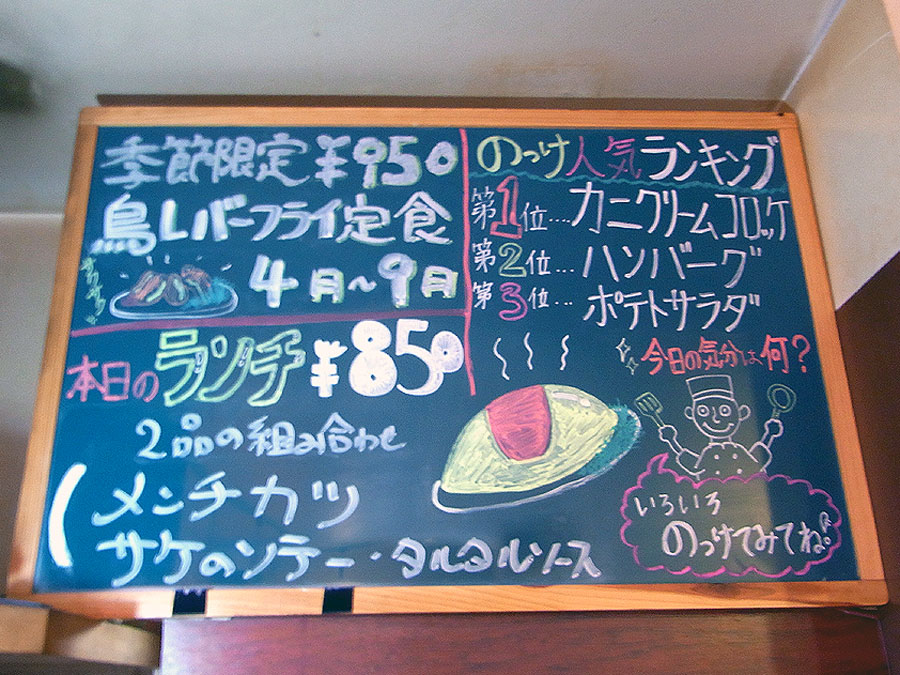 季節限定¥950
鳥レバーフライ定食
4月〜9月
本日のランチ¥850
2品の組み合わせ
メンチカツ
サケのソテー・タルタルソース
のっけ人気ランキング
第1位...カニクリームコロッケ
第2位...ハンバーグ
第3位...ポテトサラダ
今日の気分は何?
いろいろ
のっけてみてね♪